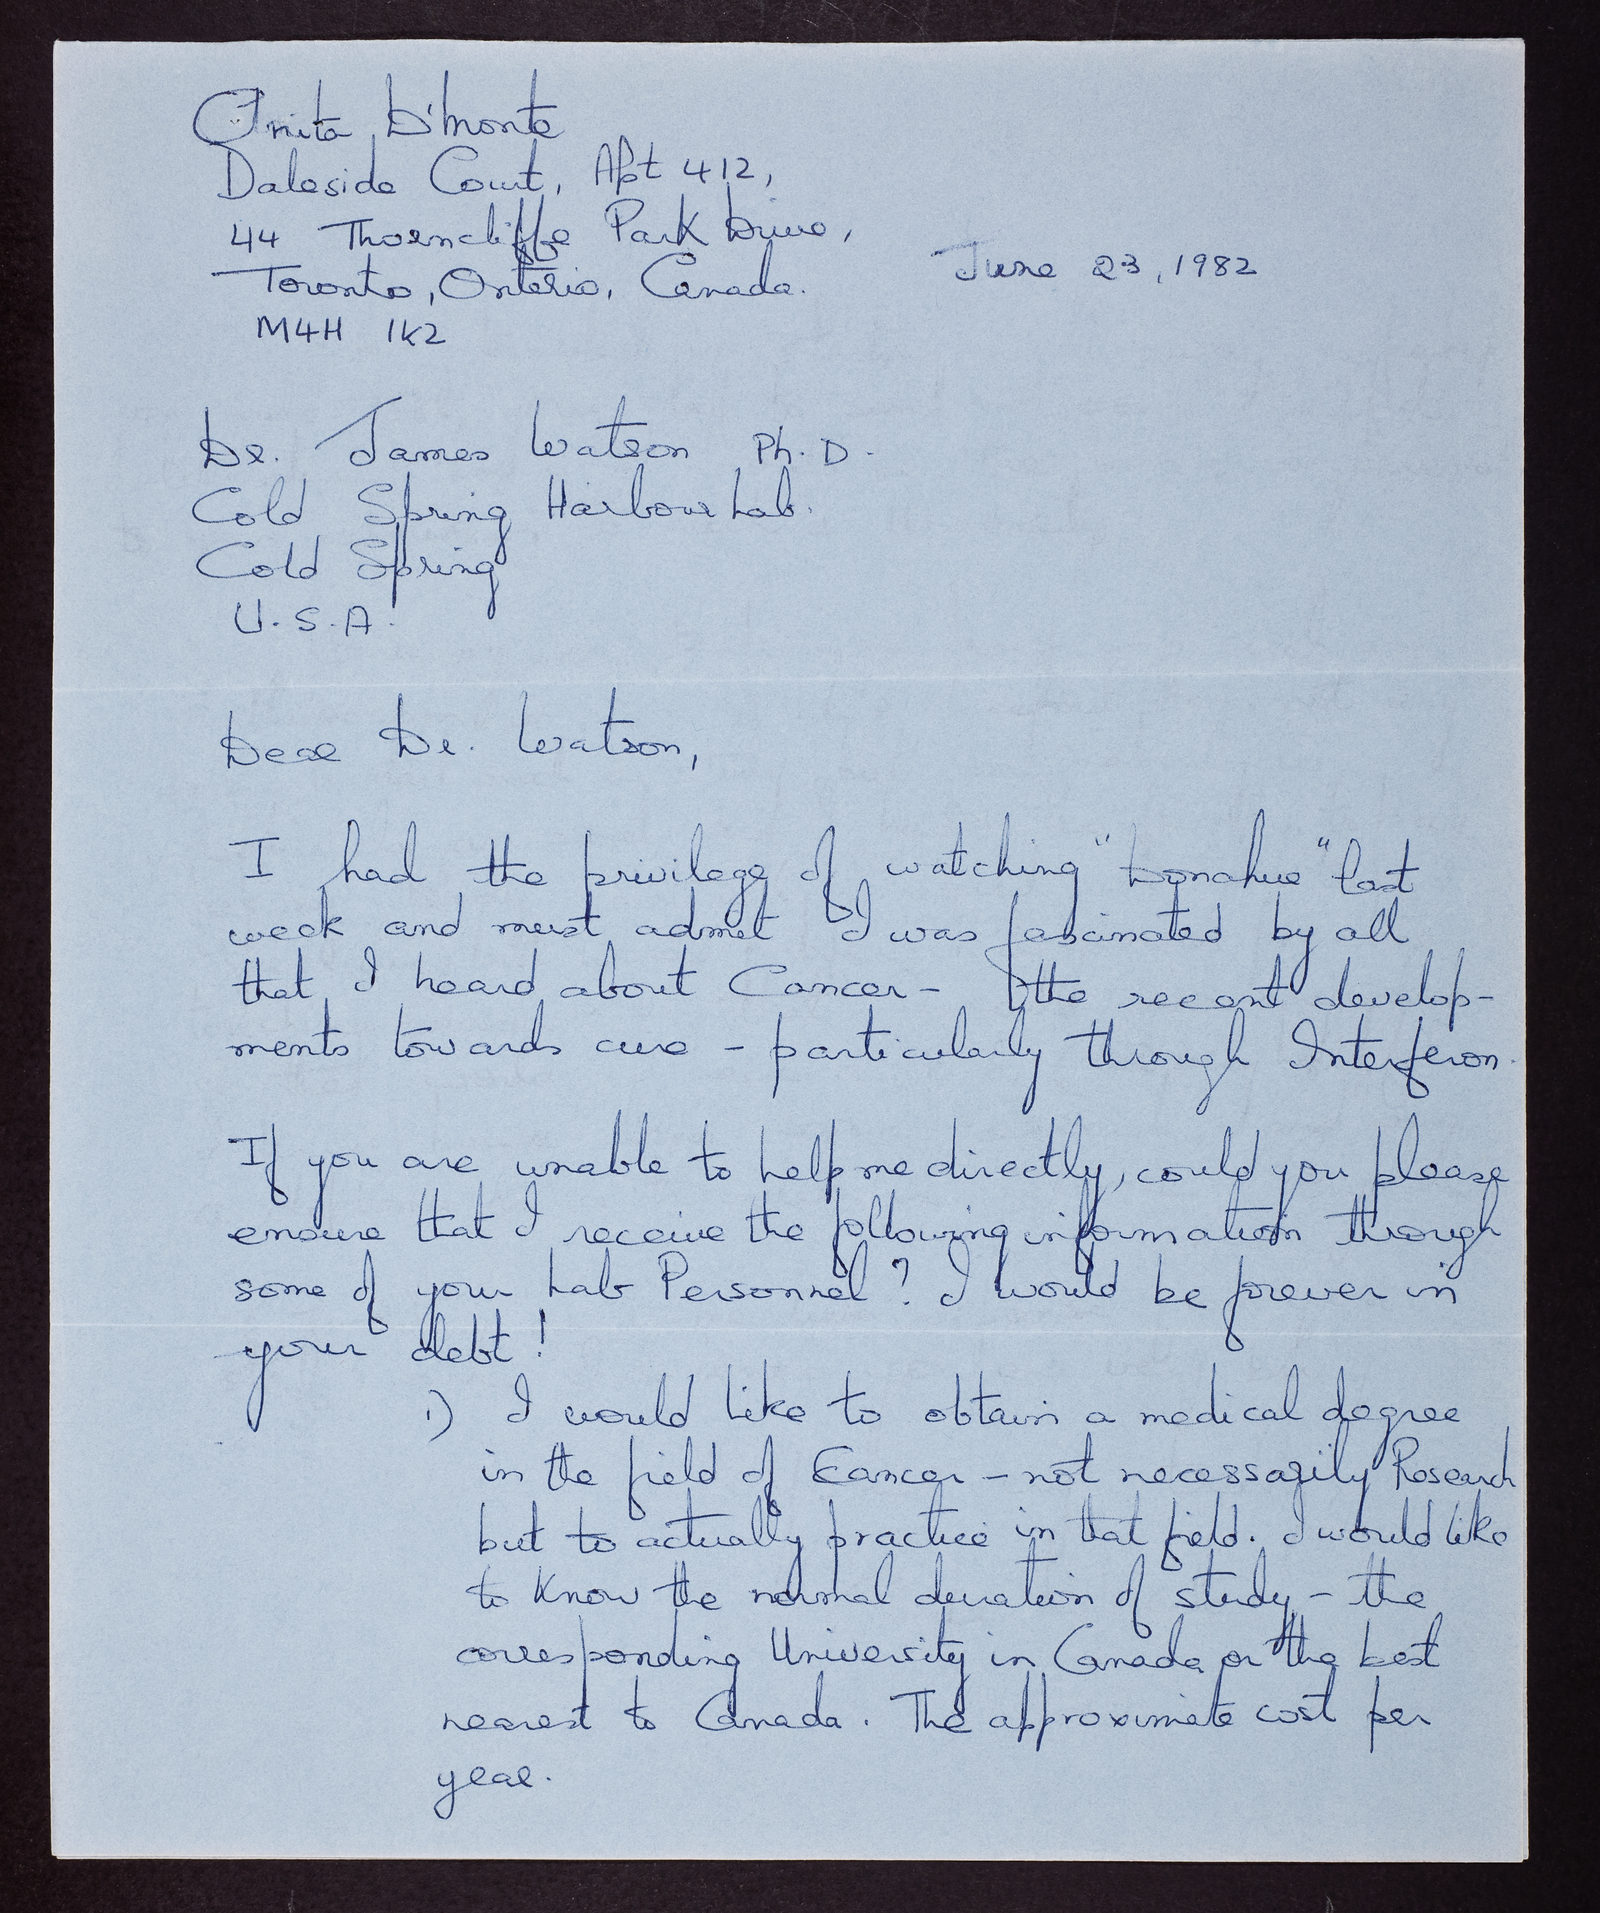 Anita D'Monte
Daleside Court, Apt 412,
44 Thorncliffe Park Drive,
Toronto, Ontario, Canada.
June 23, 1982
M4H 1K2
Dr. James Watson Ph. D.
Cold Spring Harbour Lab.
Cold Spring
U.S.A.
Dear Dr. Watson,
I had the privilege of watching "Donahue" last
week and must admit I was fascinated by all
that I heard about Cancer - the recent develop-
ments towards cure - particularly through Interferon.
If you are unable to help me directly, could you please
ensure that I receive the following information through
some of your Lab Personnel? I would be forever in
your debt!
1) I would like to obtain a medical degree
in the field of Cancer - not necessarily Research
but to actually practice in that field. I would like
to know the normal duration of study - the
corresponding University in Canada or the best
nearest to Canada. The approximate cost per
year.